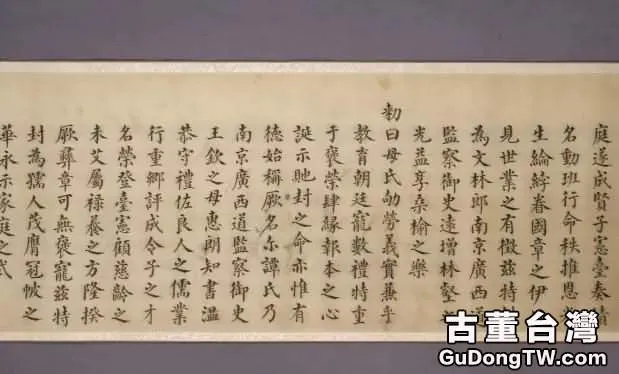 庭遂成賢子憲臺奏績
名動班行命秩推恩
生綸綍眷國章之伊
見世業之有徵茲特
為文林郎南京廣西道
監察御史逺增林壑
光益享桑榆之樂
勑曰母氏劬勞義實兼乎
教育朝廷寵數禮特重
于褒榮肆縁報本之心
誕示貤封之命亦惟有
德始稱厥名尓譚氏乃
南京廣西道監察御史
王欽之母惠朗知書温
恭守禮佐良人之儒業
行重鄉評成令子之才
名榮登臺憲顧慈齡之
未艾屬禄養之方隆揆
厥彝章可無褒寵茲特
封為孺人茂膺冠帔之
華永示家庭之式
古董台灣
GuDongTW.com